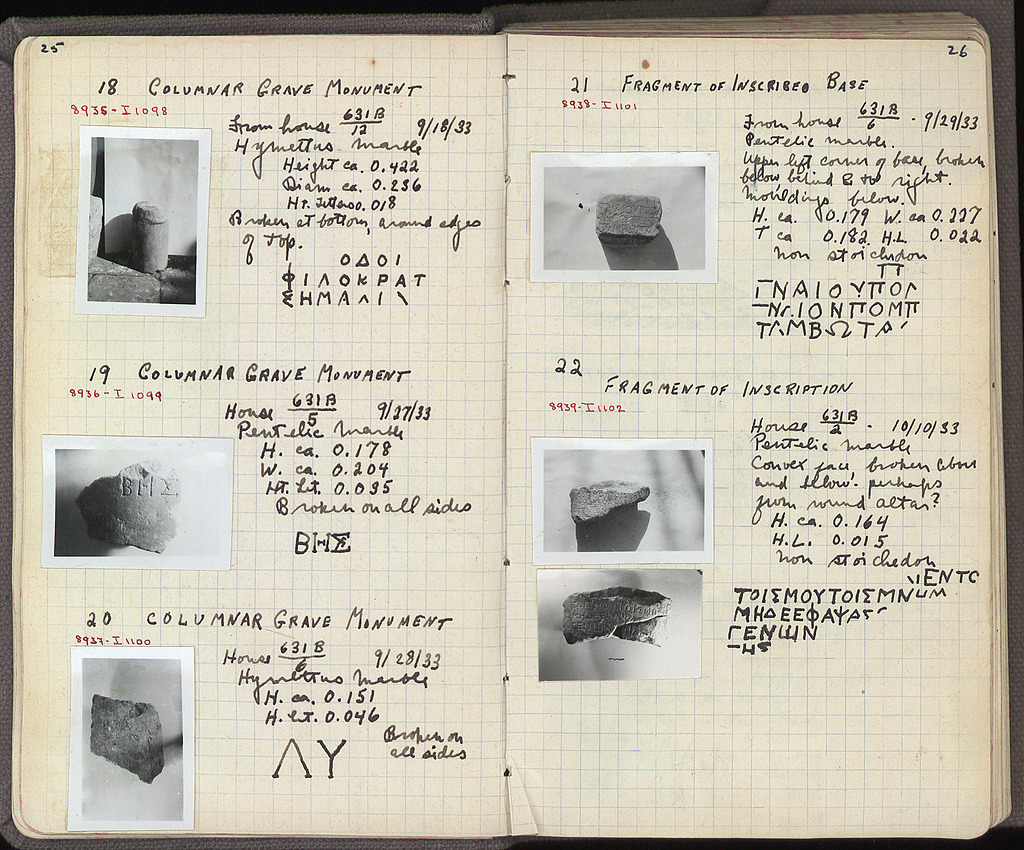 25
18 COLUMNAR GRAVE MONUMENT
8935-I 1098
From house 631B/12 9/18/33
Hymettus marble
Height ca. 0.422
Diam ca. 0.236
HT. letters 0.018
Broken at bottom, around edges
of top.
ΟΔΟΙ
ΦΙΛΟΚΡΑΤ
ΞΗΜΑΛΙ\
19 COLUMNAR GRAVE MONUMENT
8936-I 1099
House 631B/5 9/27/33
Pentelic marble
H. ca. 0.178
W. ca. 0.204
Ht. let. 0.035
Broken on all sides
ΒΗΣ
20 COLUMNAR GRAVE MONUMENT
8937-I 1100
House 631B/6 9/28/33
Hymettus marble
H. ca. 0.151
H. let. 0.046
Broken on
all sides
ΛΥ
26
21 FRAGMENT OF INSCRIBED BASE
8938-I 1101
From house 631B/6 · 9/29/33
Pentelic marble.
Upper left corner of base, broken
below behind & to right.
Mouldings below.
H. ca. 0.179 W. ca 0.227
T ca 0.182 H.L. 0.022
Non stoichedon
ΓΝΑΙΟΥΠΟΛ
ΙΟΝΠΟΜΠ
22
FRAGMENT OF INSCRIPTION
8939-I 1102
House 631B/2 · 10/10/33
Pentelic marble
Convex face, broken above
and below. perhaps
from round altar?
H. ca. 0.164
H.L. 0.015
Non stoichedon
ΕΝΤΟ
ΤΟΙΣΜΟΥΤΟΙΣΜΝωΜ
ΜΗΔΕΕΦΑΨΑΣ
ΓΕΝωΝ